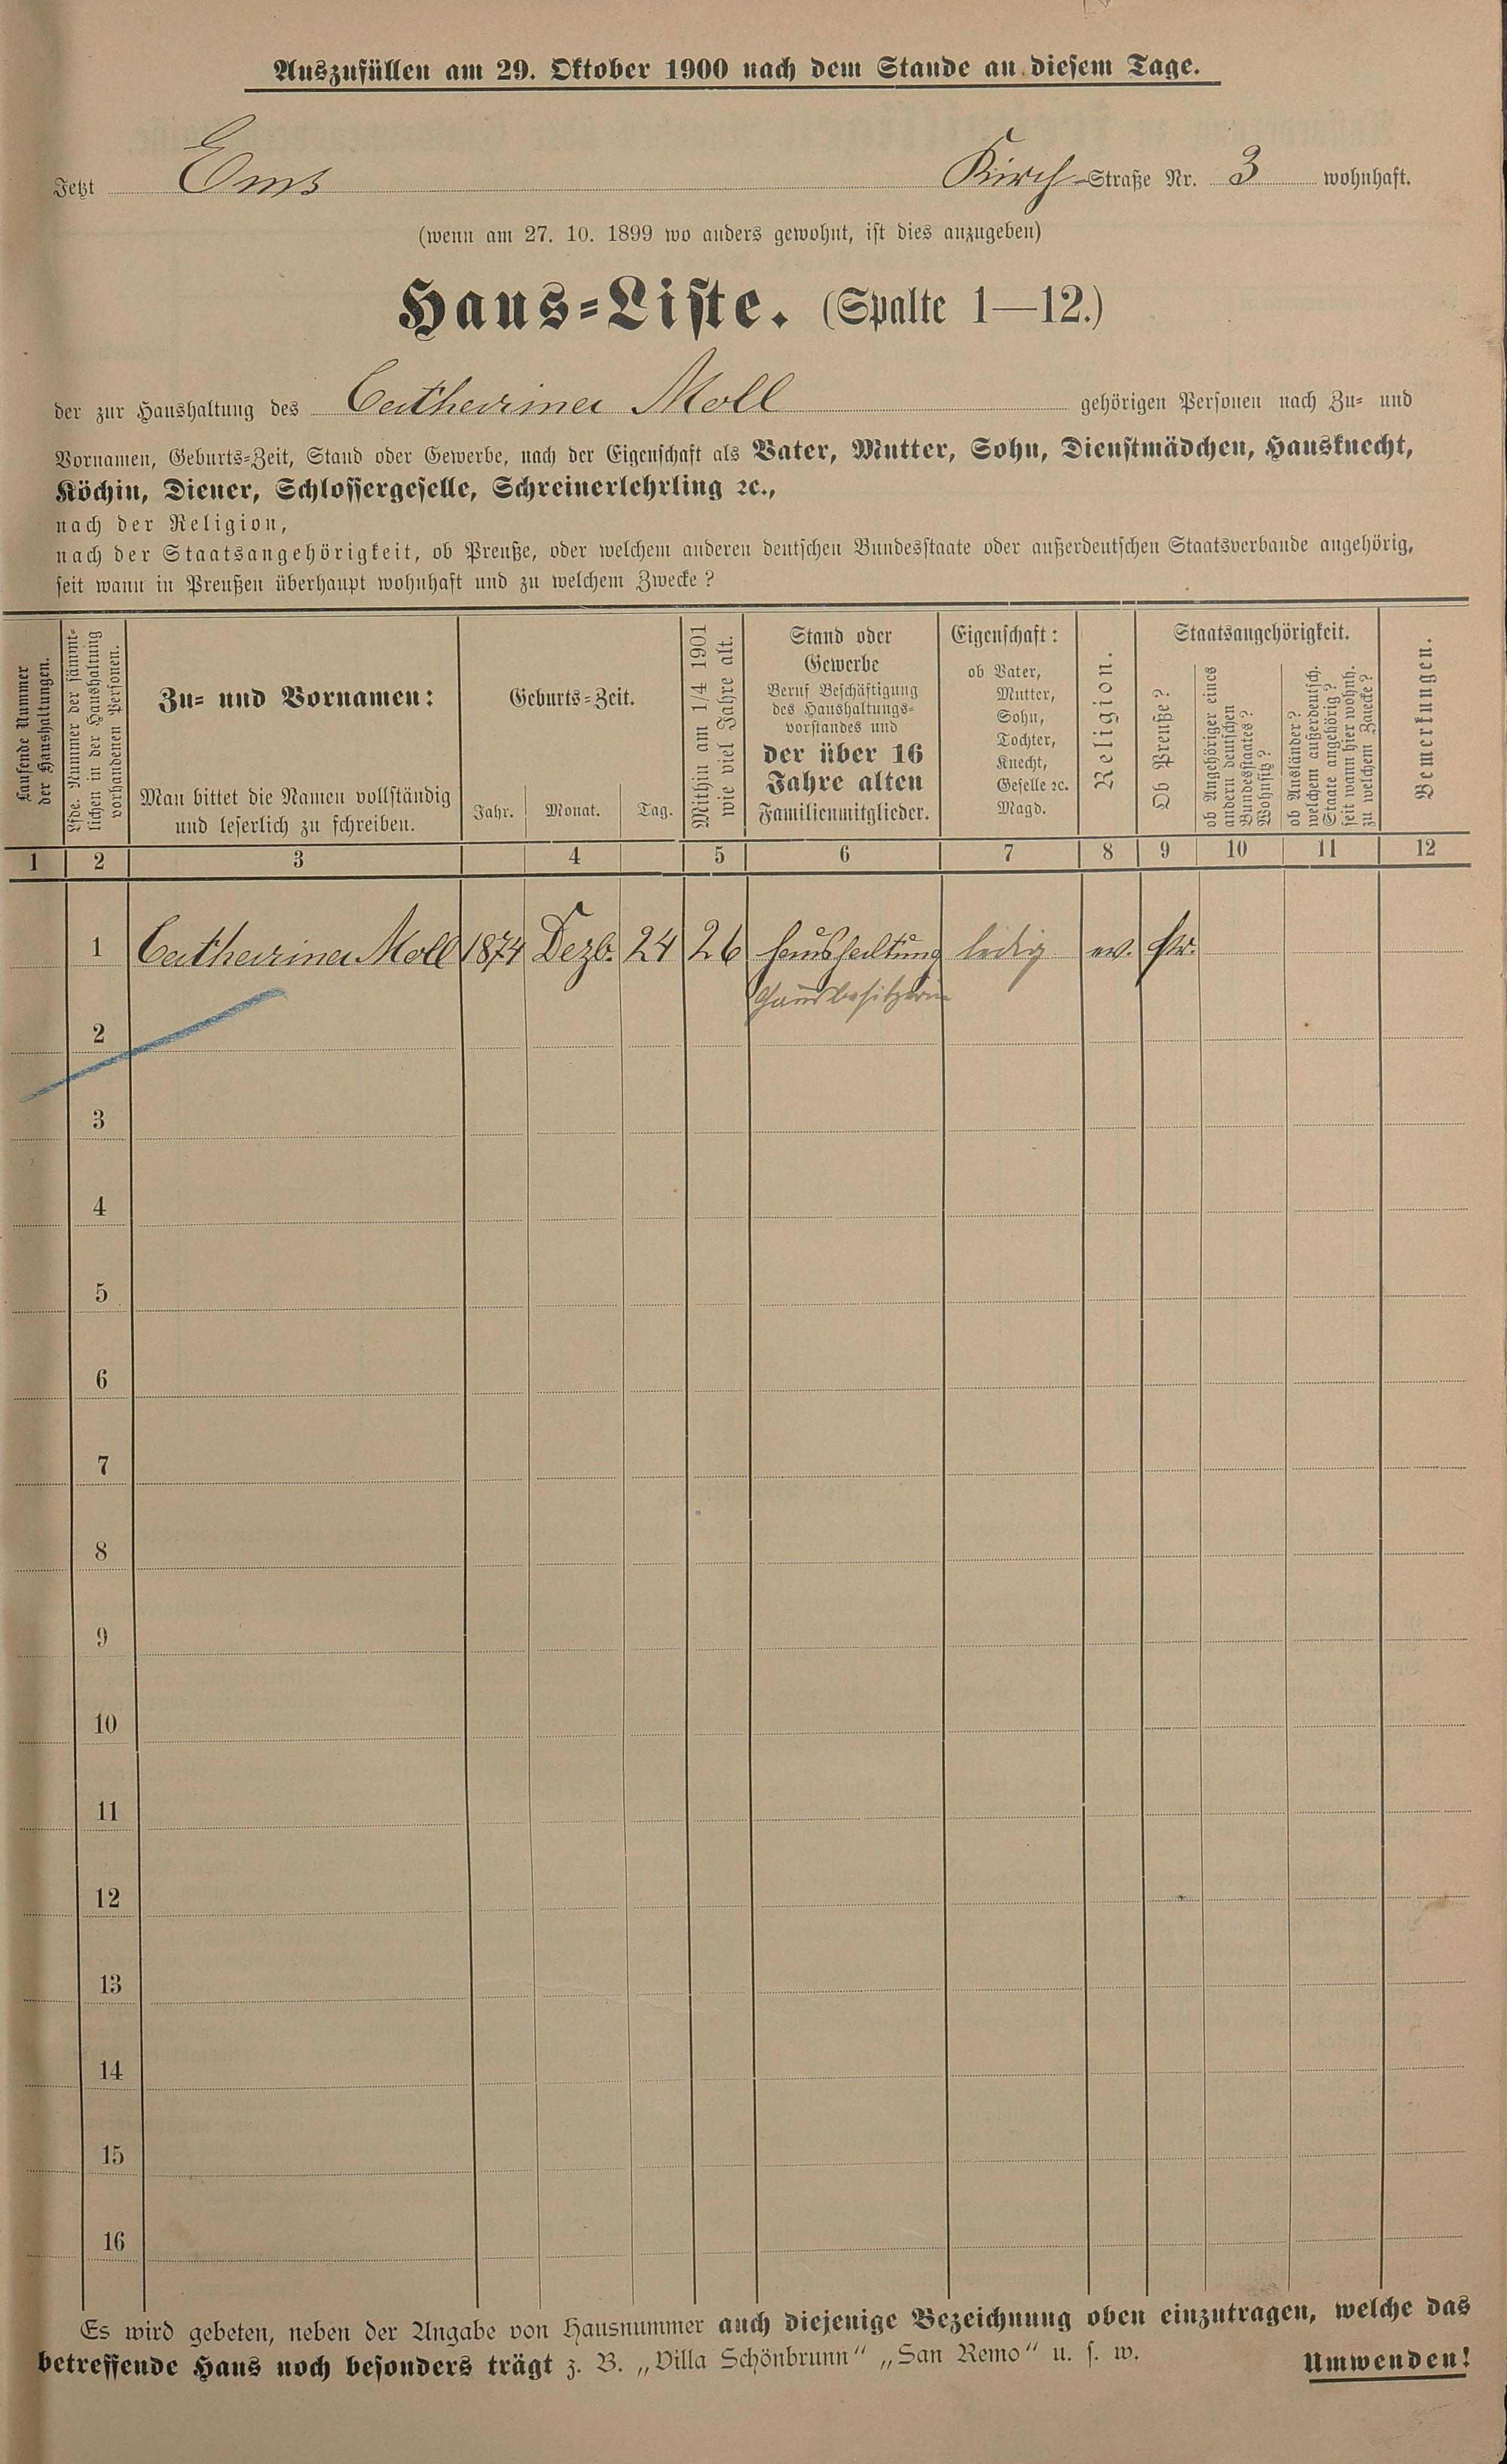 Auszufüllen am 29. Oktober 1900 nach dem Stande an diesem Tage.
Jetzt Ems Kirch-Straße Nr. 3 wohnhaft.
(wenn am 27. 10. 1899 wo anders gewohnt, ist dies anzugeben)
Haus-Liste. (Spalte 1—12.)
der zur Haushaltung des Catharina Moll gehörigen Personen nach Zu- und
Vornamen, Geburts-Zeit, Stand oder Gewerbe, nach der Eigenschaft als Vater, Mutter, Sohn, Dienstmädchen, Hausknecht,
Köchin, Diener, Schlossergeselle, Schreinerlehrling ꝛc.,
nach der Religion,
nach der Staatsangehörigkeit, ob Preuße, oder welchem anderen deutschen Bundesstaate oder außerdeutschen Staatsverbande angehörig,
seit wann in Preußen überhaupt wohnhaft und zu welchem Zwecke?
Laufende Nummer
der Haushaltungen.
Lfde. Nummer der sämmt-
lichen in der Haushaltung
vorhandenen Personen.
Zu- und Vornamen:
Man bittet die Namen vollständig
und leserlich zu schreiben.
Geburts-Zeit.
Jahr. Monat. Tag.
Mithin am 1/4 1901
wie viel Jahre alt.
Stand oder
Gewerbe
Beruf Beschäftigung
des Haushaltungs-
vorstandes und
der über 16
Jahre alten
Familienmitglieder.
Eigenschaft:
ob Vater,
Mutter,
Sohn,
Tochter,
Knecht,
Geselle ꝛc.
Magd.
Religion.
Staatsangehörigkeit.
Ob Preuße?
ob Angehöriger eines
andern deutschen
Bundesstaates?
Wohnsitz?
ob Ausländer?
welchem außerdeutsch.
Staate angehörig?
seit wann hier wohnh.
zu welchem Zwecke?
Bemerkungen.
1 2 3 4 5 6 7 8 9 10 11 12
1 Catharina Moll 1874 Dezb. 24 26 Haushaltung ledig ev. Pr.
Hausbesitzerin
2
3
4
5
6
7
8
9
10
11
12
13
14
15
16
Es wird gebeten, neben der Angabe von Hausnummer auch diejenige Bezeichnung oben einzutragen, welche das
betreffende Haus noch besonders trägt z. B. „Villa Schönbrunn“ „San Remo“ u. s. w. Umwenden!